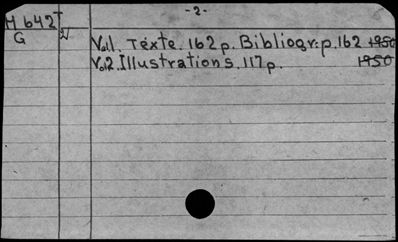 -2-
M 642
G
Vol.1. Texte. 162p. Bibliogr: p.162 1950
Vol.2. Illustrations. 117p. 1950